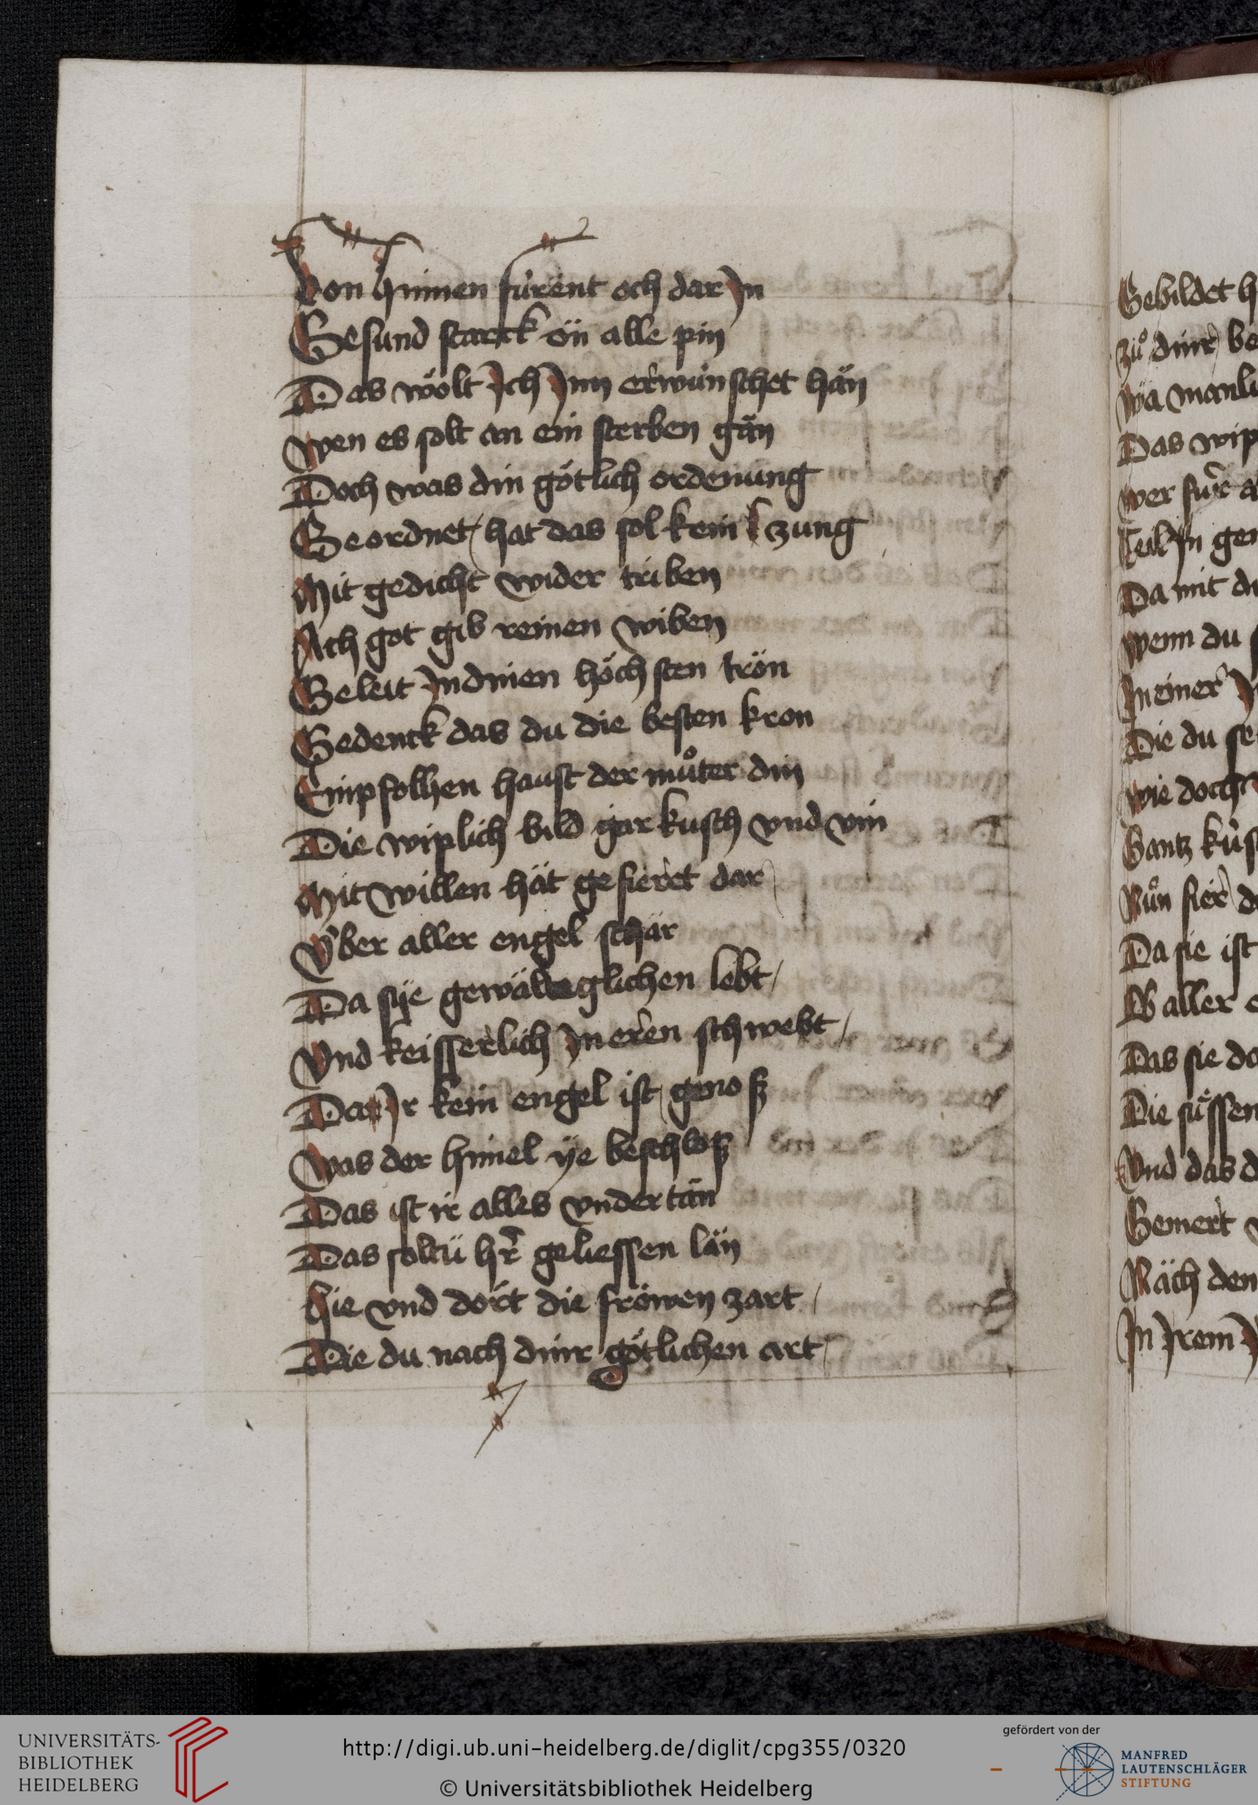 Von hinnen fürent och dar Jn
Gesund starck ön alle pin
Das wölt Jch Jnn erwünschet hän
wen es solt an ein sterben gän
Doch was din götlich ordenung
Geordnet hat das sol kein zung
Mit gedicht wider triben
Ach got gib reinen wiben
Geleit Jn dinen höchsten trön
Gedenck das du die besten kron
Empfolhen haust der muͦter din
Die wiplich bild gar kusch vnd vin
Mit willen hät gefieret dar
Vber aller engel schar
Da sÿe gewälteglichen lebt
Vnd keisserlich Jn eren schwebt
Da Jr kein engel ist genosz
Was der himel ÿe beschlosz
Das ist ir alles vndertän
Das soltü hr̃ geliessen län
Hie vnd dört die fröwen zart
Die du nach dinr götlichen art
Gebildet h
zuͦ dinr be
wa manli
Das wip
wer für a
Teil Jn gen
Da mit di
wenn du s
Jn einer
Die du se
wie doch
Gantz küs
Nuͦn fier d
Da sie ist
Ob aller e
Das sie do
Die süssen
Vnd das d
Gemert
Näch den
Jn Jrem
UNIVERSITÄTS-
BIBLIOTHEK
HEIDELBERG
http://digi.ub.uni-heidelberg.de/diglit/cpg355/0320
© Universitätsbibliothek Heidelberg
gefördert von der
MANFRED
LAUTENSCHLÄGER
STIFTUNG